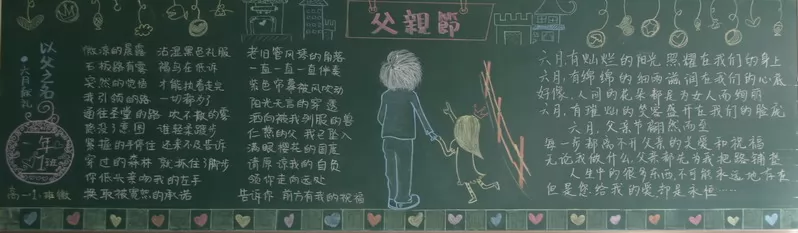 父親節
以父之名
六月献礼
一年
1班
高一1班徽
微凉的晨露 沾湿黑色礼服
石板路有雾 在低诉
突然的觉悟 才能执着走
我引领的路 一切都
通往圣堂的路 吹不散的雾
意图 谁轻柔踱步
紧握的手停住 还来不及告诉
穿过的森林 就抓住了脚步
你低头亲吻我的左手
换取被宽恕的承诺
老旧管风琴的角落
一直一直一直伴奏
黑色帘幕被风吹动
阳光无言的穿透
洒向被我驯服的兽
仁慈的父 我已坠入
满眼樱花的国度
请原谅我的自负
领你走向远处
告诉你 前方有我的祝福
六月,有灿烂的阳光,照耀在我们的身上
六月,有绵绵的细雨滋润在我们的心底
好像,人间的花朵都是为女人而绚丽
六月,有璀灿的笑容盛开在我们的脸庞
六月,父亲节翩然而至
每一步都离不开父亲的关爱和祝福
无论我做什么,父亲都先为我把路铺垫
人生中的很多东西,不可能永远地存在
但是,您给我的爱,却是永恒……